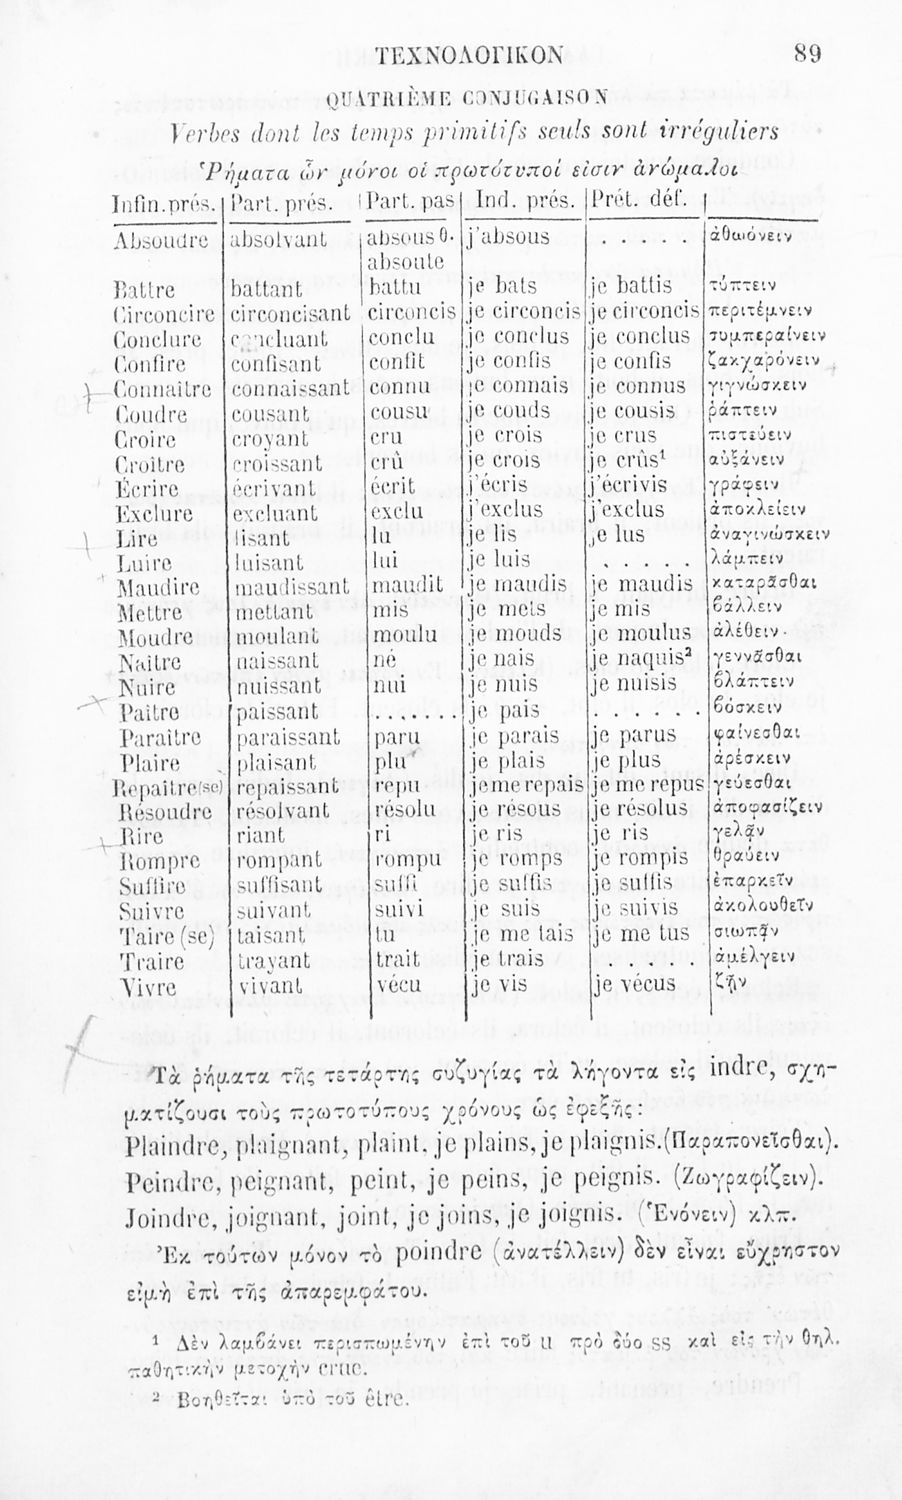 ΤΕΧΝΟΛΟΓΙΚΟΝ 89
QUATRIÈME CONJUGAISON
Verbes dont les temps primitifs seuls sont irréguliers
Ῥήματα ὧν μόνοι οἱ πρωτότυποί εἰσιν ἀνώμαλοι
Infin.prés. Part. prés. Part. pas Ind. prés. Prét. déf.
Absoudre absolvant absous θ. j'absous . . . . . ἀθωόνειν
absoute
Battre battant battu je bats je battis τύπτειν
Circoncire circoncisant circoncis je circoncis je circoncis περιτέμνειν
Conclure concluant conclu je conclus je conclus συμπεραίνειν
Confire confisant confit je confis je confis ζακχαρόνειν
Connaître connaissant connu je connais je connus γιγνώσκειν
Coudre cousant cousu je couds je cousis ῥάπτειν
Croire croyant cru je crois je crus πιστεύειν
Croître croissant crû je crois je crûs¹ αὐξάνειν
Écrire écrivant écrit j'écris j'écrivis γράφειν
Exclure excluant exclu j'exclus j'exclus ἀποκλείειν
Lire lisant lu je lis je lus ἀναγινώσκειν
Luire luisant lui je luis . . . . . λάμπειν
Maudire maudissant maudit je maudis je maudis καταρᾶσθαι
Mettre mettant mis je mets je mis βάλλειν
Moudre moulant moulu je mouds je moulus ἀλέθειν
Naître naissant né je nais je naquis² γεννᾶσθαι
Nuire nuissant nui je nuis je nuisis βλάπτειν
Paître paissant . . . . . . . je pais . . . . . . βόσκειν
Paraître paraissant paru je parais je parus φαίνεσθαι
Plaire plaisant plu je plais je plus ἀρέσκειν
Repaître(se) repaissant repu je me repais je me repus γεύεσθαι
Résoudre résolvant résolu je résous je résolus ἀποφασίζειν
Rire riant ri je ris je ris γελᾷν
Rompre rompant rompu je romps je rompis θραύειν
Suffire suffisant suffi je suffis je suffis ἐπαρκεῖν
Suivre suivant suivi je suis je suivis ἀκολουθεῖν
Taire (se) taisant tu je me tais je me tus σιωπᾷν
Traire trayant trait je trais . . . . . ἀμέλγειν
Vivre vivant vécu je vis je vécus ζῇν
Τὰ ῥήματα τῆς τετάρτης συζυγίας τὰ λήγοντα εἰς indre, σχη-
ματίζουσι τοὺς πρωτοτύπους χρόνους ὡς ἐφεξῆς:
Plaindre, plaignant, plaint, je plains, je plaignis.(Παραπονεῖσθαι).
Peindre, peignant, peint, je peins, je peignis. (Ζωγραφίζειν).
Joindre, joignant, joint, je joins, je joignis. (Ἑνόνειν) κλπ.
Ἐκ τούτων μόνον τὸ poindre (ἀνατέλλειν) δὲν εἶναι εὔχρηστον
εἰμὴ ἐπὶ τῆς ἀπαρεμφάτου.
¹ Δὲν λαμβάνει περισπωμένην ἐπὶ τοῦ u πρὸ δύο ss καὶ εἰς τὴν θηλ.
παθητικὴν μετοχὴν crue.
² Βοηθεῖται ὑπὸ τοῦ être.